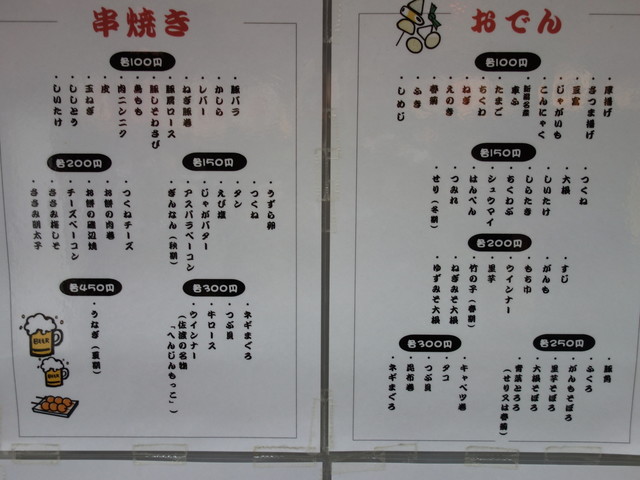 串焼き
各100円
・豚バラ
・かしら
・レバー
・ねぎ豚巻
・豚肩ロース
・豚しそわさび
・鳥もも
・肉ニンニク
・皮
・玉ねぎ
・ししとう
・しいたけ
各150円
・うずら卵
・つくね
・タン
・えび塩
・じゃがバター
・アスパラベーコン
・ぎんなん（秋期）
各200円
・つくねチーズ
・お餅の肉巻
・お餅の磯辺焼
・チーズベーコン
・ささみ梅しそ
・ささみ明太子
各300円
・ネギまぐろ
・つぶ貝
・牛ロース
・ウインナー
（佐渡の名物
「へんじんもっこ」）
各450円
・うなぎ（夏期）
BEER
BEER
おでん
各100円
・厚揚げ
・さつま揚げ
・豆富
・じゃがいも
・こんにゃく
・新潟名産
車ふ
・たまご
・ちくわ
・ねぎ
・えのき
・春菊
・ふき
・しめじ
各150円
・つくね
・大根
・しいたけ
・しらたき
・ちくわぶ
・シュウマイ
・はんぺん
・つみれ
・せり（冬期）
各200円
・すじ
・がんも
・もち巾
・ウインナー
・里芋
・竹の子（春期）
・ねぎみそ大根
・ゆずみそ大根
各250円
・豚角
・ふくろ
・がんもそぼろ
・里芋そぼろ
・大根そぼろ
・青菜とろろ
（せり又は春菊）
各300円
・キャベツ巻
・タコ
・つぶ貝
・昆布巻
・ネギまぐろ